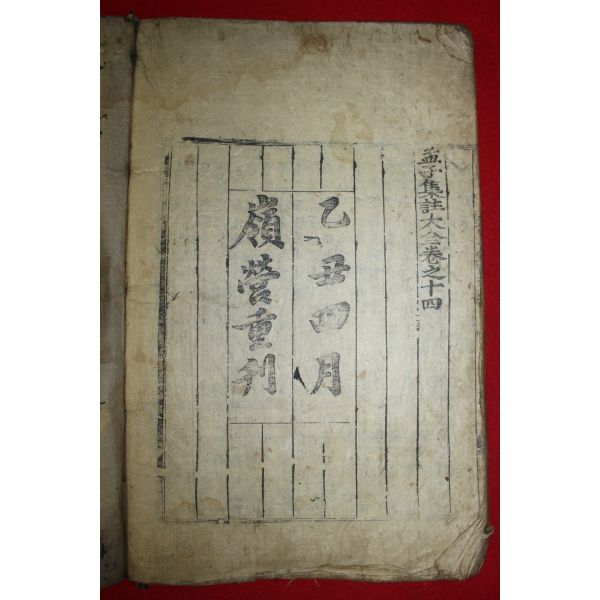 孟子集註大全卷之十四
乙丑四月
嶺營重刊